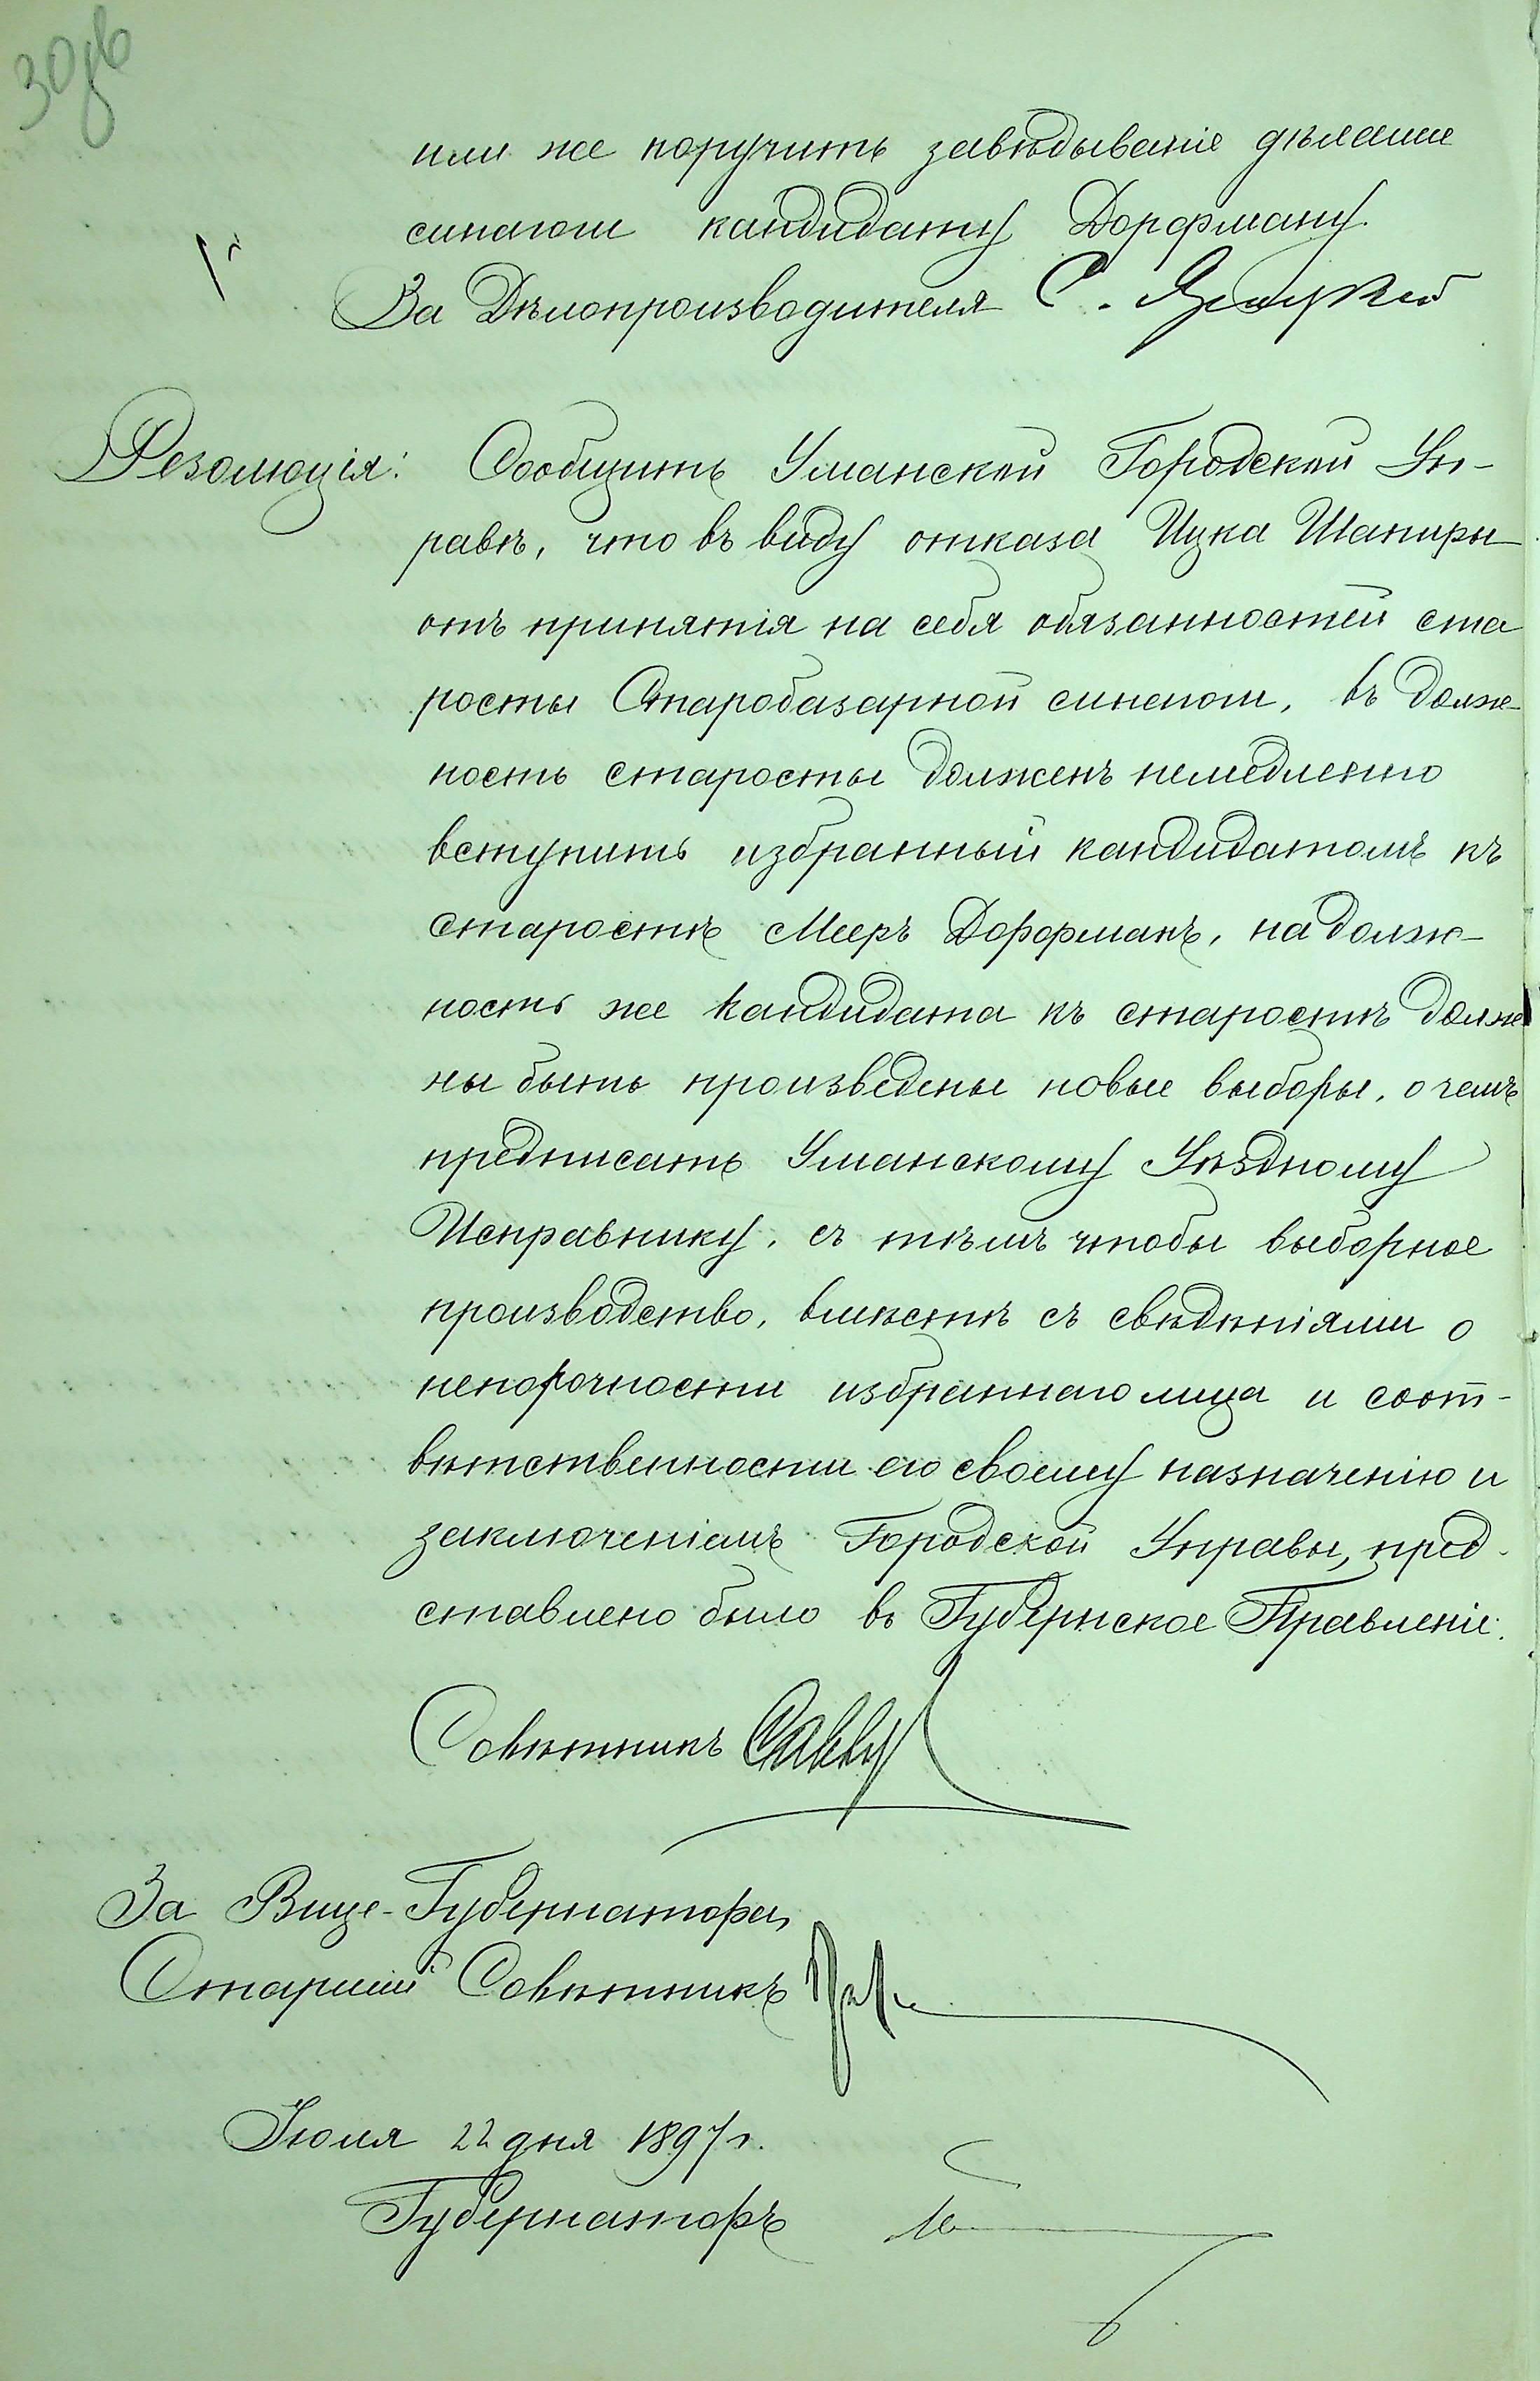 30об
или же поручить завѣдываніе дѣлами
синагоги кандидату Дорфману.
За Дѣлопроизводителя С.
Резолюція: Сообщить Уманской Городской Уп-
равѣ, что въ виду отказа Ицка Шапиры
отъ принятія на себя обязанностей ста
росты Старобазарной синагоги, въ долж-
ность старосты долженъ немедленно
вступить избранный кандидатомъ къ
старостѣ Мееръ Дорфманъ, на долж-
ность же кандидата къ старостѣ долж
ны быть произведены новые выборы, о чемъ
предписать Уманскому Уѣздному
Исправнику, съ тѣмъ чтобы выборное
производство, вмѣстѣ съ свѣдѣніями о
непорочности избраннаго лица и соот-
вѣтственности его своему назначенію и
заключеніемъ Городской Управы, пред-
ставлено было въ Губернское Правленіе.
Совѣтникъ
За Вице-Губернатора,
Старшій Совѣтникъ
Іюля 22 дня 1897 г.
Губернаторъ